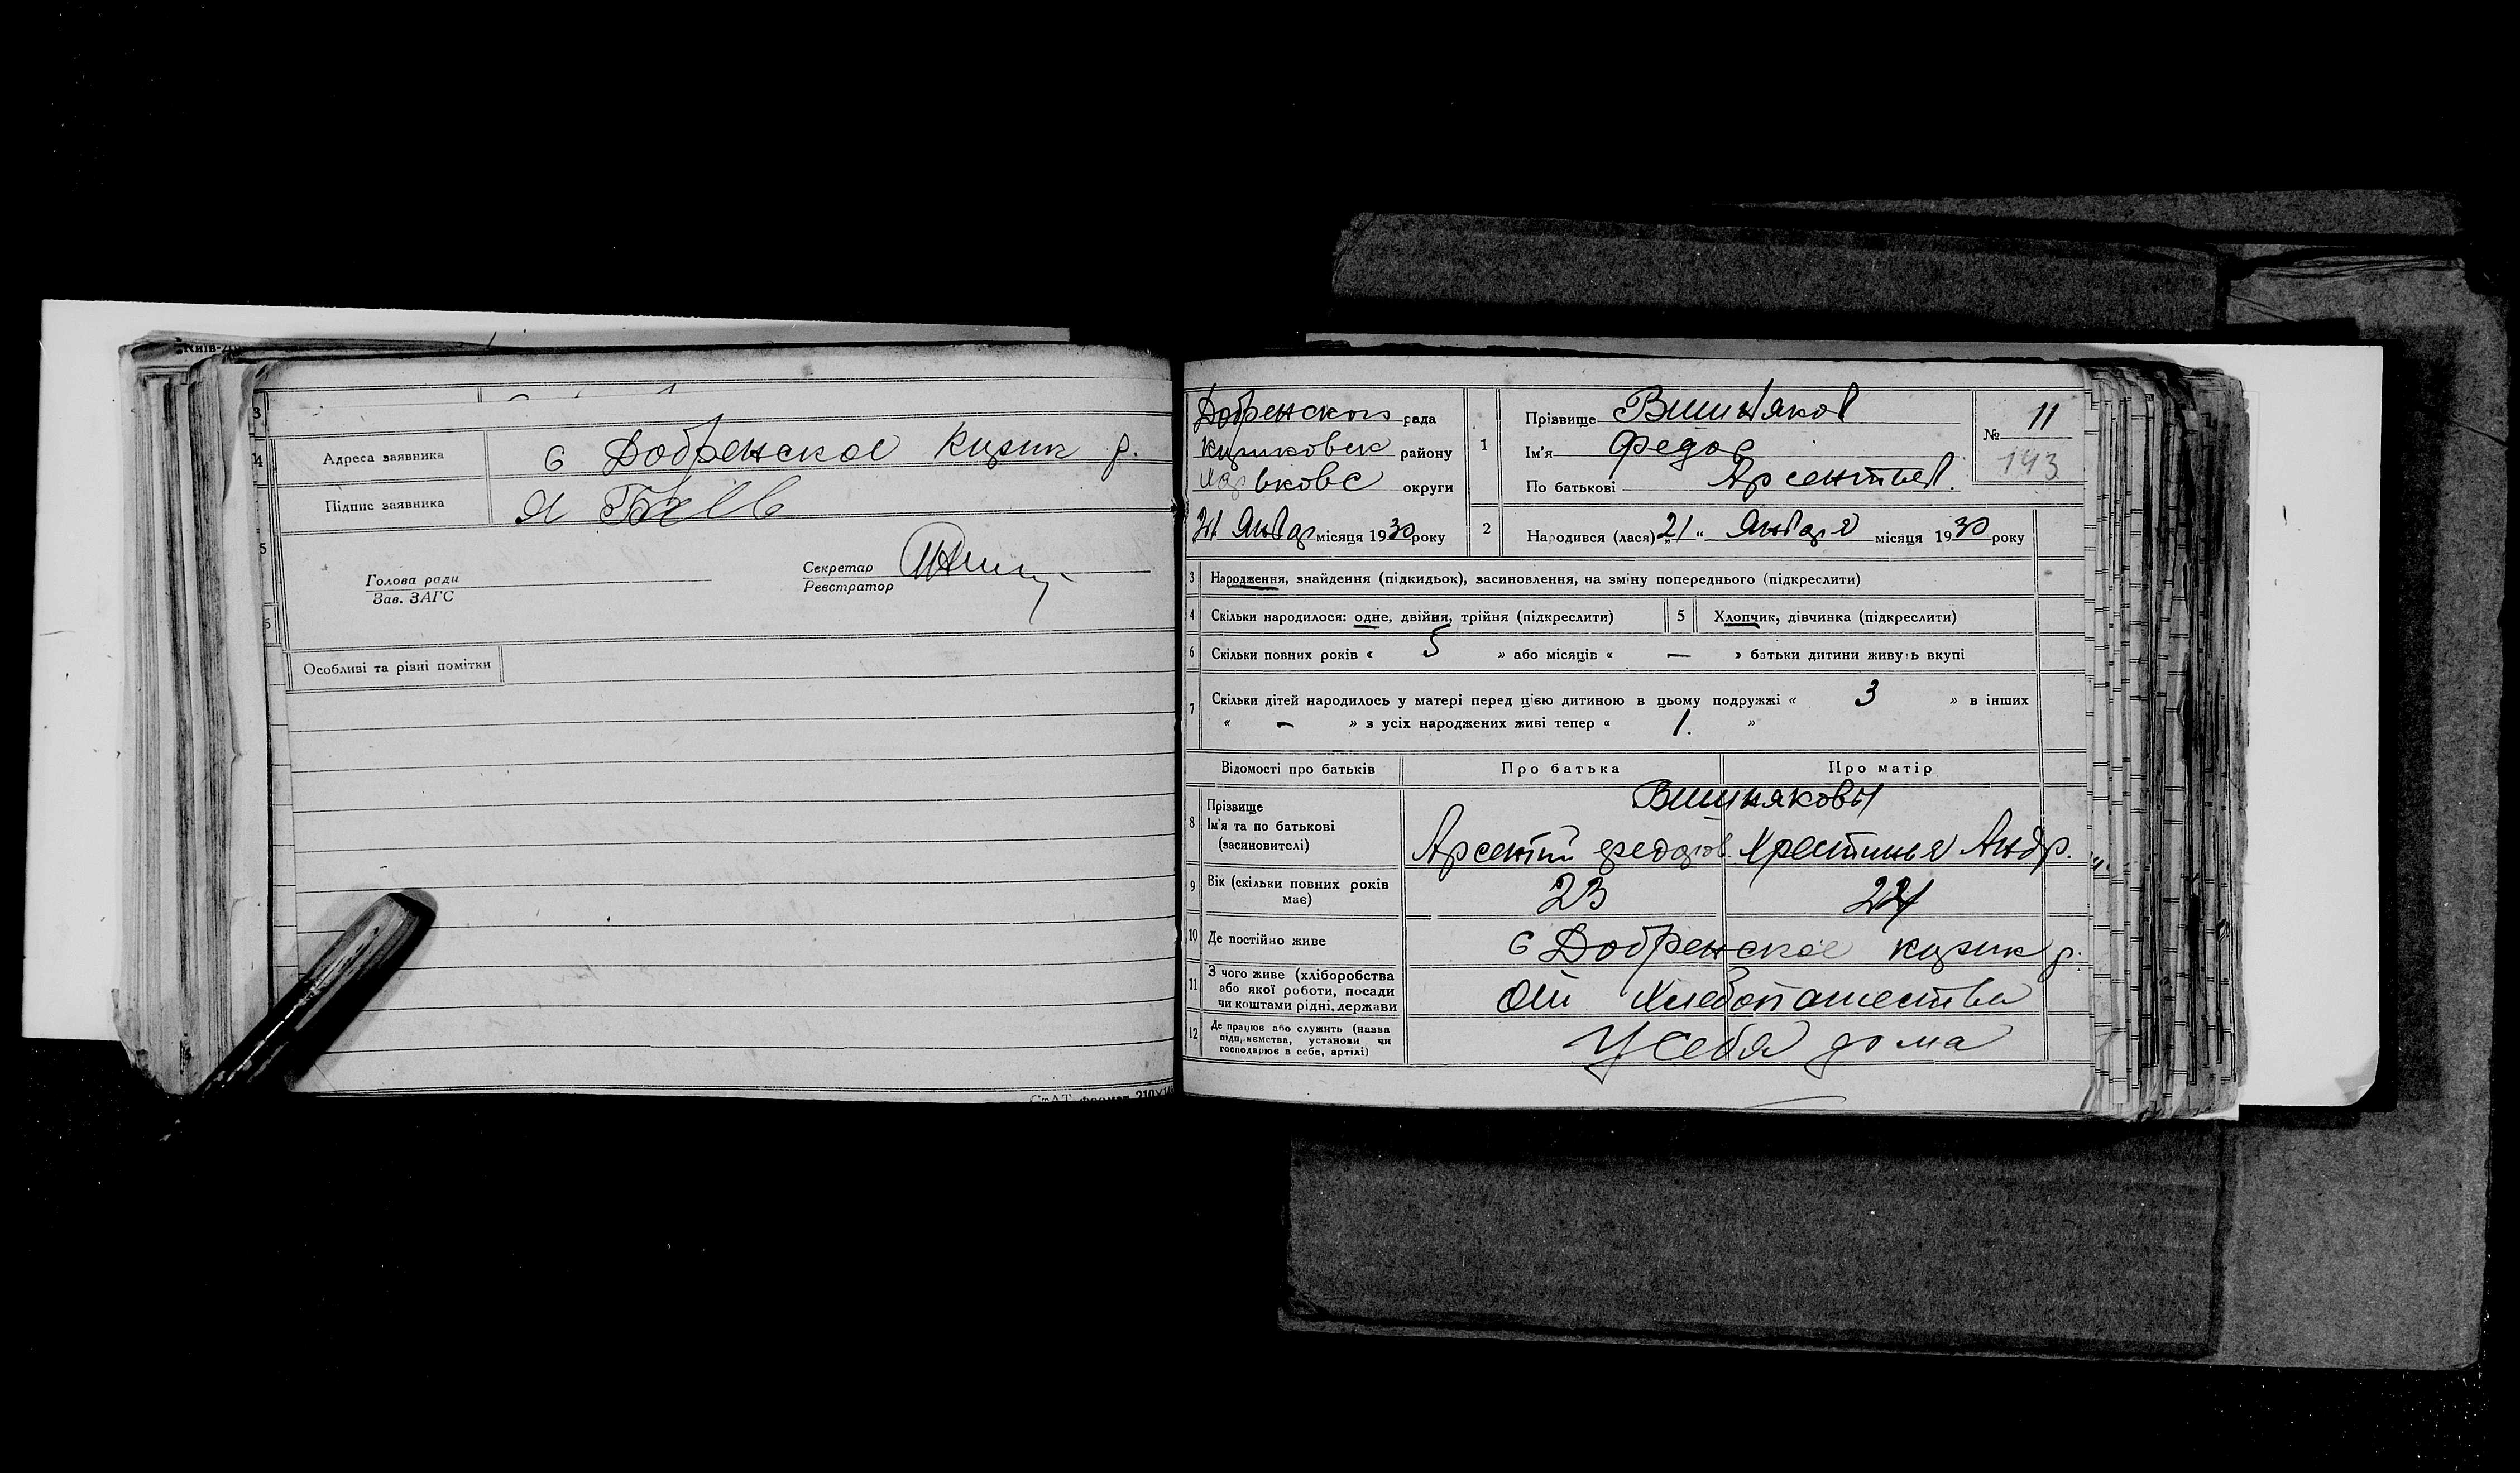 3
14
Адреса заявника
с Добренское Кцзик р.
Підпис заявника
5
Голова ради
Зав. ЗАГС
Секретар
Реєстратор
Особливі та різні помітки
формат 210×
Добренского рада
району
Харьковс округи
21 Январ місяця 1930 року
1
Прізвище Вишняков
Ім'я Федор
По батькові Арсентьев.
№ 11
143
2
Народився (лася) „21“ Января місяця 1930 року
3 Народження, знайдення (підкидьок), засиновлення, на зміну попереднього (підкреслити)
4 Скільки народилося: одне, двійня, трійня (підкреслити)
5 Хлопчик, дівчинка (підкреслити)
6 Скільки повних років « 5 » або місяців « — » батьки дитини живуть вкупі
7 Скільки дітей народилось у матері перед цією дитиною в цьому подружжі « 3 » в інших
« - » з усіх народжених живі тепер « 1. »
Відомості про батьків
Про батька
Про матір
8
Прізвище
Ім'я та по батькові
(засиновителі)
Вишняковы
Арсентий Федоров. Крестинья Андр.
9 Вік (скільки повних років
має)
23
10 Де постійно живе
с Добренское кцзик р.
11 З чого живе (хліборобства
або якої роботи, посади
чи коштами рідні, держави
От Хлебопашества
12 Де працює або служить (назва
підприємства, установи чи
господарює в себе, артілі)
У себя дома